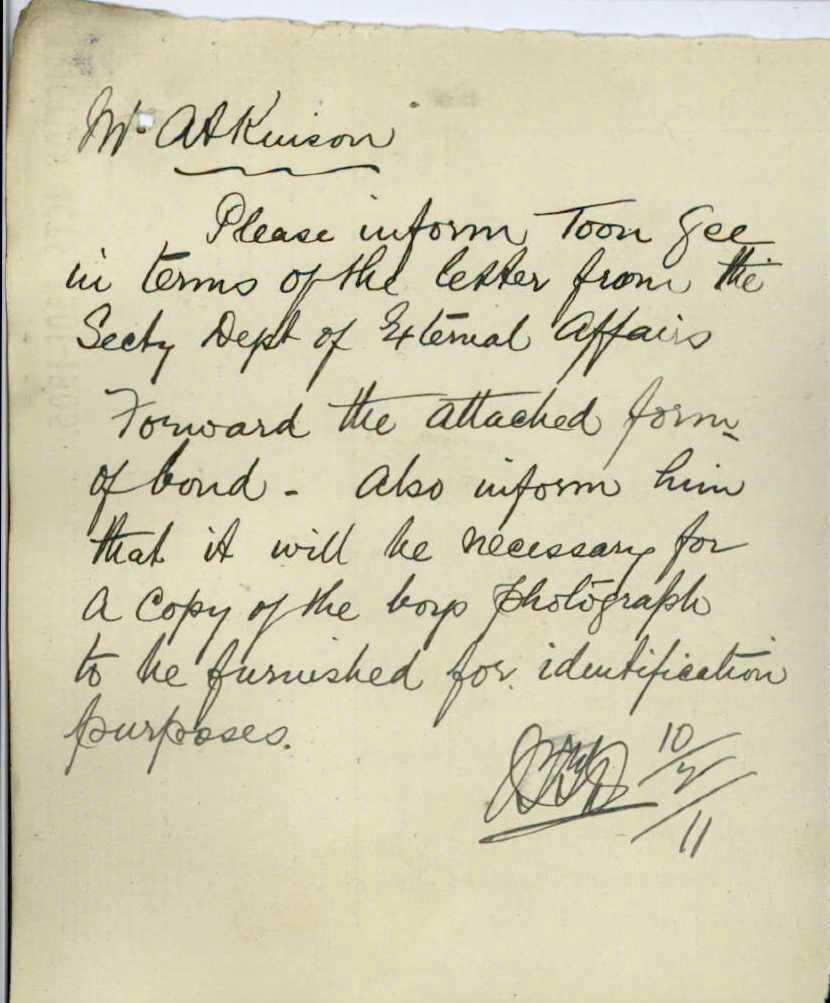 Mr. Atkinson
Please inform Toon Gee
in terms of the letter from the
Secty Dept of External Affairs
Forward the attached form
of bond - Also inform him
that it will be necessary for
a copy of the boys photograph
to be furnished for identification
purposes.
10/7/11